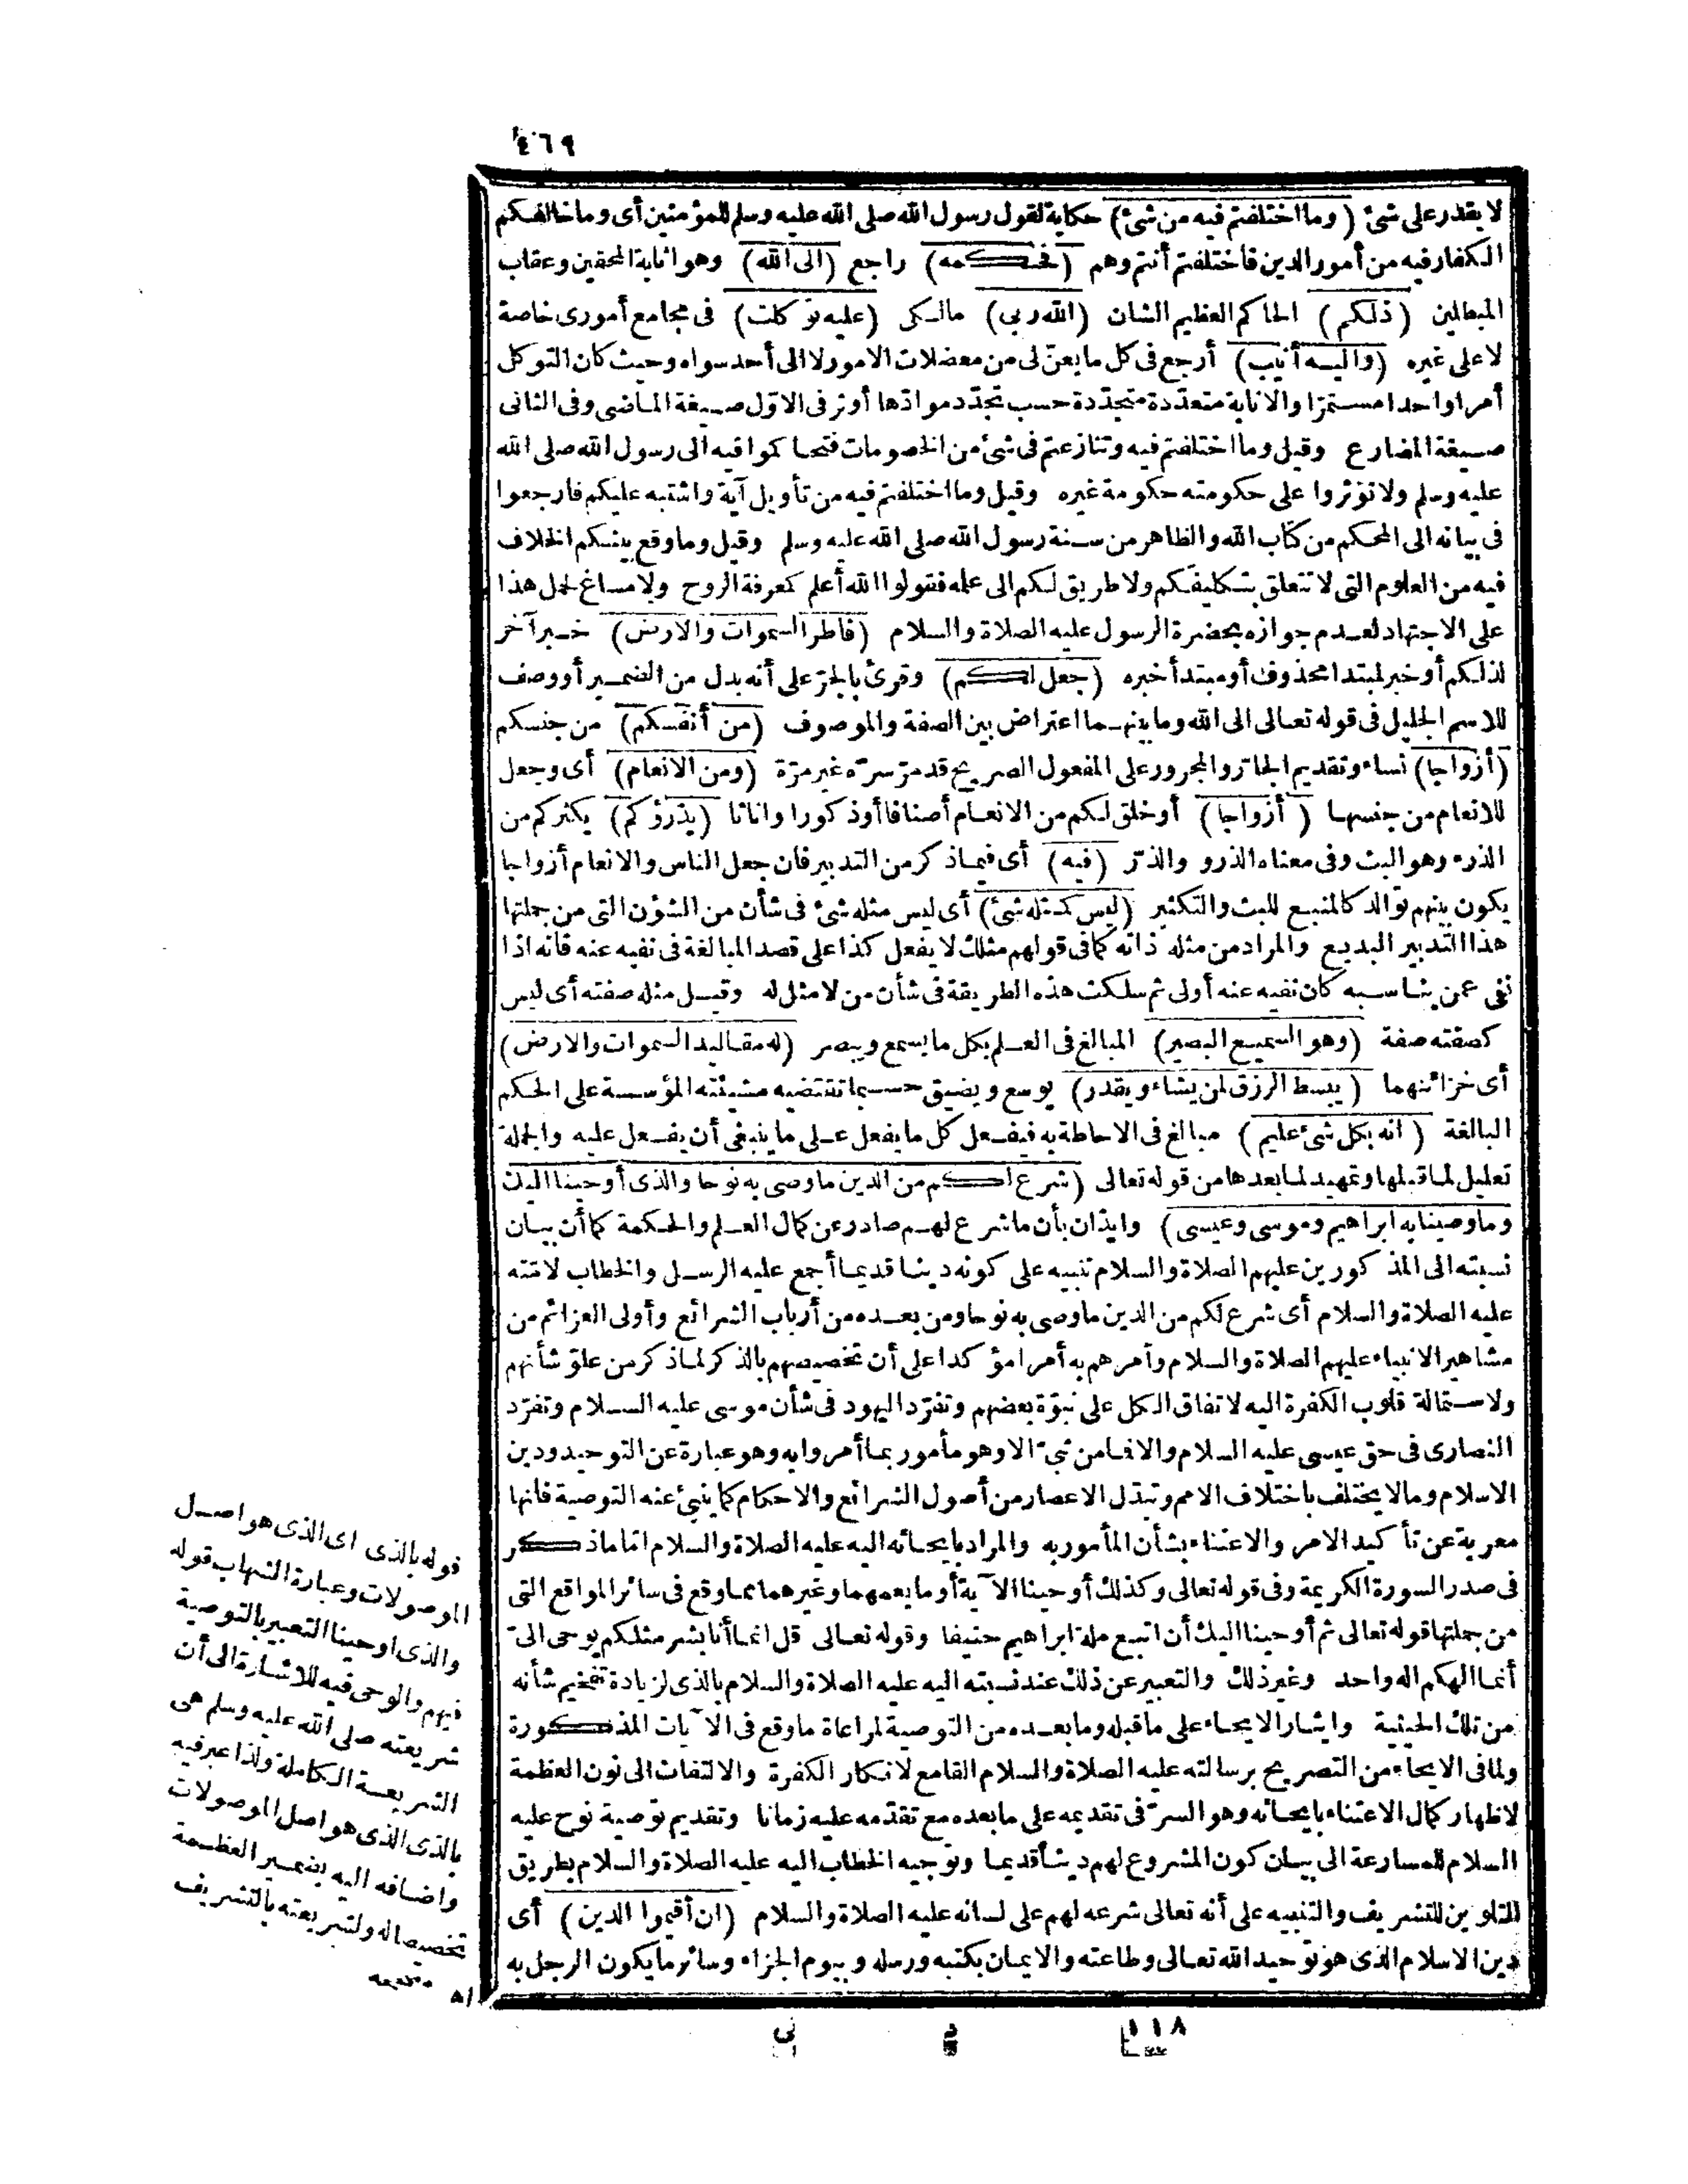 ٤٦٩
لا يقدر على شئ (وما اختلفتم فيه من شئ) حكاية لقول رسول الله صلى الله عليه وسلم للمؤمنين أى وما خالفكم
الكفار فيه من أمور الدين فاختلفتم أنتم وهم (فحكمه) راجع (الى الله) وهو اثابة المحقين وعقاب
المبطلين (ذلكم) الحاكم العظيم الشان (الله ربى) مالكى (عليه توكلت) فى مجامع أمورى خاصة
لا على غيره (واليه أنيب) أرجع فى كل ما يعنّ لى من معضلات الامور لا الى أحد سواه وحيث كان التوكل
أمرا واحدا مستمرّا والانابة متعدّدة متجدّدة حسب تجدّد موادّها أوثر فى الاوّل صيغة الماضى وفى الثانى
صيغة المضارع وقيل وما اختلفتم فيه وتنازعتم فى شئ من الخصومات فتحاكموا فيه الى رسول الله صلى الله
عليه وسلم ولا تؤثروا على حكومته حكومة غيره وقيل وما اختلفتم فيه من تأويل آية واشتبه عليكم فارجعوا
فى بيانه الى المحكم من كتاب الله والظاهر من سنة رسول الله صلى الله عليه وسلم وقيل وما وقع بينكم الخلاف
فيه من العلوم التى لا تتعلق بتكليفكم ولا طريق لكم الى علمه فقولوا الله أعلم كمعرفة الروح ولا مساغ لحمل هذا
على الاجتهاد لعدم جوازه بحضرة الرسول عليه الصلاة والسلام (فاطر السموات والارض) خبر آخر
لذلكم أو خبر لمبتدا محذوف أو مبتدأ خبره (جعل لكم) وقرئ بالجرّ على أنه بدل من الضمير أو وصف
للاسم الجليل فى قوله تعالى الى الله وما بينهما اعتراض بين الصفة والموصوف (من أنفسكم) من جنسكم
(أزواجا) نساء وتقديم الجارّ والمجرور على المفعول الصريح قد مرّ سرّه غير مرّة (ومن الانعام) أى وجعل
للانعام من جنسها (أزواجا) أو خلق لكم من الانعام أصنافا أو ذكورا واناثا (يذرؤكم) يكثركم من
الذرء وهو البث وفى معناه الذرو والذرّ (فيه) أى فيما ذكر من التدبير فان جعل الناس والانعام أزواجا
يكون بينهم توالد كالمنبع للبث والتكثير (ليس كمثله شئ) أى ليس مثله شئ فى شأن من الشؤن التى من جملتها
هذا التدبير البديع والمراد من مثله ذاته كما فى قولهم مثلك لا يفعل كذا على قصد المبالغة فى نفيه عنه فانه اذا
نفى عمن يناسبه كان نفيه عنه أولى ثم سلكت هذه الطريقة فى شأن من لا مثل له وقيل مثله صفته أى ليس
كصفته صفة (وهو السميع البصير) المبالغ فى العلم بكل ما يسمع ويبصر (له مقاليد السموات والارض)
أى خزائنهما (يبسط الرزق لمن يشاء ويقدر) يوسع ويضيق حسبما تقتضيه مشيئته المؤسسة على الحكم
البالغة (انه بكل شئ عليم) مبالغ فى الاحاطة به فيفعل كل ما يفعل على ما ينبغى أن يفعل عليه والجملة
تعليل لما قبلها وتمهيد لما بعدها من قوله تعالى (شرع لكم من الدين ما وصى به نوحا والذى أوحينا اليك
وما وصينا به ابراهيم وموسى وعيسى) وايذان بأن ما شرع لهم صادر عن كمال العلم والحكمة كما أن بيان
نسبته الى المذكورين عليهم الصلاة والسلام تنبيه على كونه دينا قديما أجمع عليه الرسل والخطاب لامّته
عليه الصلاة والسلام أى شرع لكم من الدين ما وصى به نوحا ومن بعده من أرباب الشرائع وأولى العزائم من
مشاهير الانبياء عليهم الصلاة والسلام وأمرهم به أمرا مؤكدا على أن تخصيصهم بالذكر لما ذكر من علوّ شأنهم
ولاستمالة قلوب الكفرة اليه لاتفاق الكل على نبوّة بعضهم وتفرّد اليهود فى شأن موسى عليه السلام وتفرّد
النصارى فى حق عيسى عليه السلام والا فما من نبىّ الا وهو مأمور بما أمروا به وهو عبارة عن التوحيد ودين
الاسلام وما لا يختلف باختلاف الامم وتبدّل الاعصار من أصول الشرائع والاحكام كما ينبئ عنه التوصية فانها
معربة عن تأكيد الامر والاعتناء بشأن المأمور به والمراد بايحائه اليه عليه الصلاة والسلام امّا ما ذكر
فى صدر السورة الكريمة وفى قوله تعالى وكذلك أوحينا الآية أو ما يعمهما وغيرهما مما وقع فى سائر المواقع التى
من جملتها قوله تعالى ثم أوحينا اليك أن اتبع ملة ابراهيم حنيفا وقوله تعالى قل انما أنا بشر مثلكم يوحى الىّ
أنما الهكم اله واحد وغير ذلك والتعبير عن ذلك عند نسبته اليه عليه الصلاة والسلام بالذى لزيادة تفخيم شأنه
من تلك الحيثية وايثار الايحاء على ما قبله وما بعده من التوصية لمراعاة ما وقع فى الآيات المذكورة
ولما فى الايحاء من التصريح برسالته عليه الصلاة والسلام القامع لانكار الكفرة والالتفات الى نون العظمة
لاظهار كمال الاعتناء بايحائه وهو السرّ فى تقديمه على ما بعده مع تقدّمه عليه زمانا وتقديم توصية نوح عليه
السلام للمسارعة الى بيان كون المشروع لهم دينا قديما وتوجيه الخطاب اليه عليه الصلاة والسلام بطريق
التلوين للتشريف والتنبيه على أنه تعالى شرعه لهم على لسانه عليه الصلاة والسلام (ان أقيموا الدين) أى
دين الاسلام الذى هو توحيد الله تعالى وطاعته والايمان بكتبه ورسله وبيوم الجزاء وسائر ما يكون الرجل به
قوله بالذى اى الذى هو اصل
الموصولات وعبارة الشهاب قوله
والذى اوحينا التعبير بالتوصية
فيهم والوحى فيه للاشارة الى أن
شريعته صلى الله عليه وسلم هى
الشريعة الكاملة ولذا عبر فيه
بالذى الذى هو اصل الموصولات
واضافه اليه بضمير العظمة
تخصيصا له ولشريعته بالتشريف
اه مصححه
١١٨